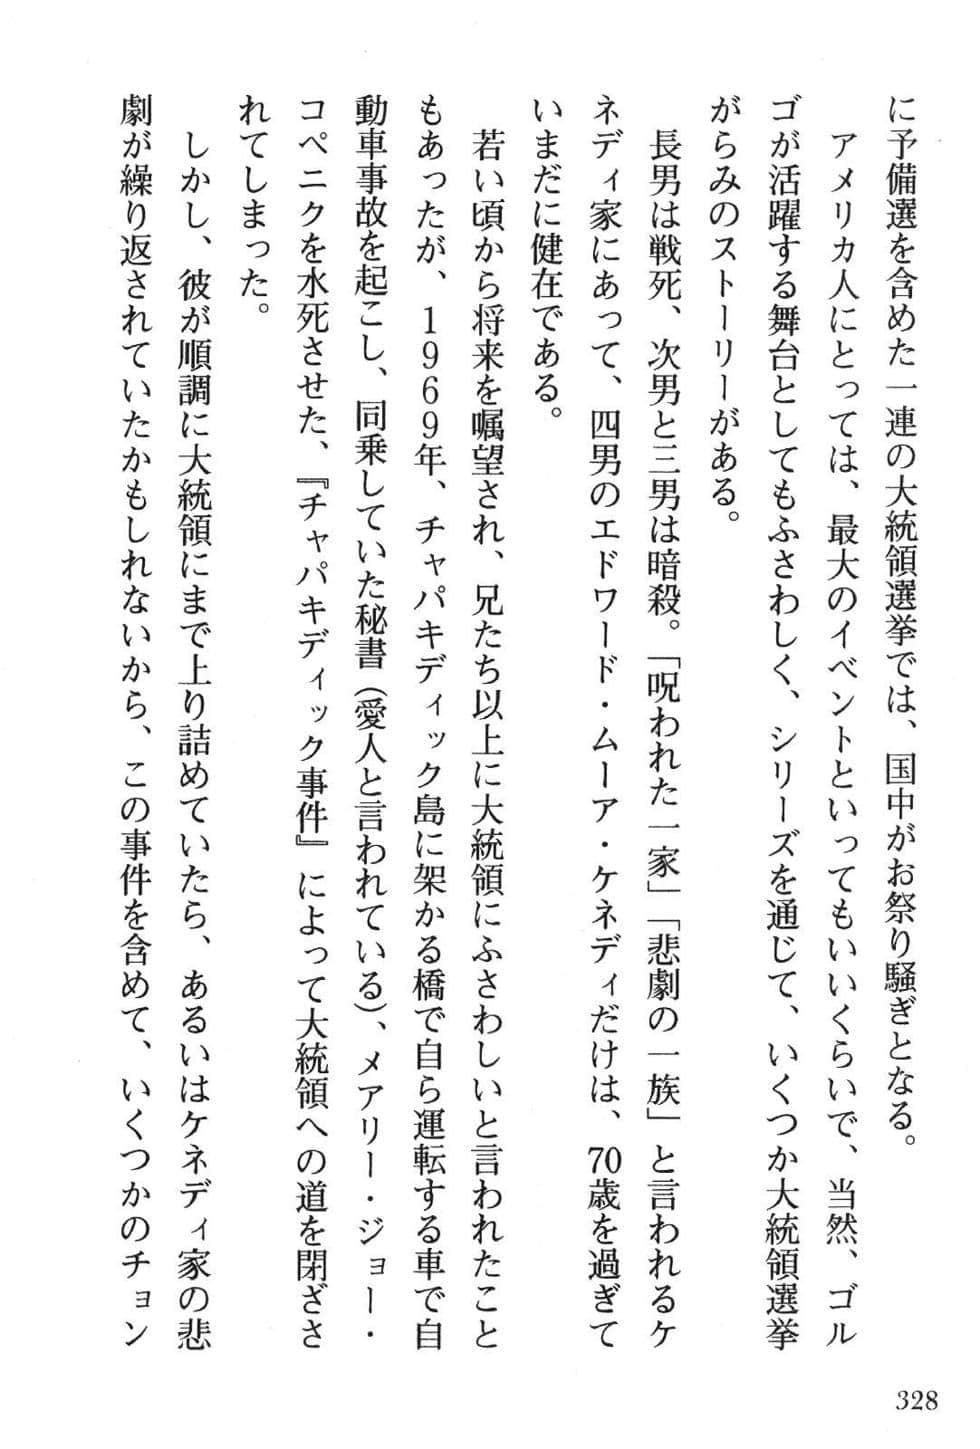 に予備選を含めた一連の大統領選挙では、国中がお祭り騒ぎとなる。
アメリカ人にとっては、最大のイベントといってもいいくらいで、当然、ゴル
ゴが活躍する舞台としてもふさわしく、シリーズを通じて、いくつか大統領選挙
がらみのストーリーがある。
長男は戦死、次男と三男は暗殺。「呪われた一家」「悲劇の一族」と言われるケ
ネディ家にあって、四男のエドワード・ムーア・ケネディだけは、70歳を過ぎて
いまだに健在である。
若い頃から将来を嘱望され、兄たち以上に大統領にふさわしいと言われたこと
もあったが、1969年、チャパキディック島に架かる橋で自ら運転する車で自
動車事故を起こし、同乗していた秘書（愛人と言われている）、メアリー・ジョー・
コペニクを水死させた、『チャパキディック事件』によって大統領への道を閉ざさ
れてしまった。
しかし、彼が順調に大統領にまで上り詰めていたら、あるいはケネディ家の悲
劇が繰り返されていたかもしれないから、この事件を含めて、いくつかのチョン
328